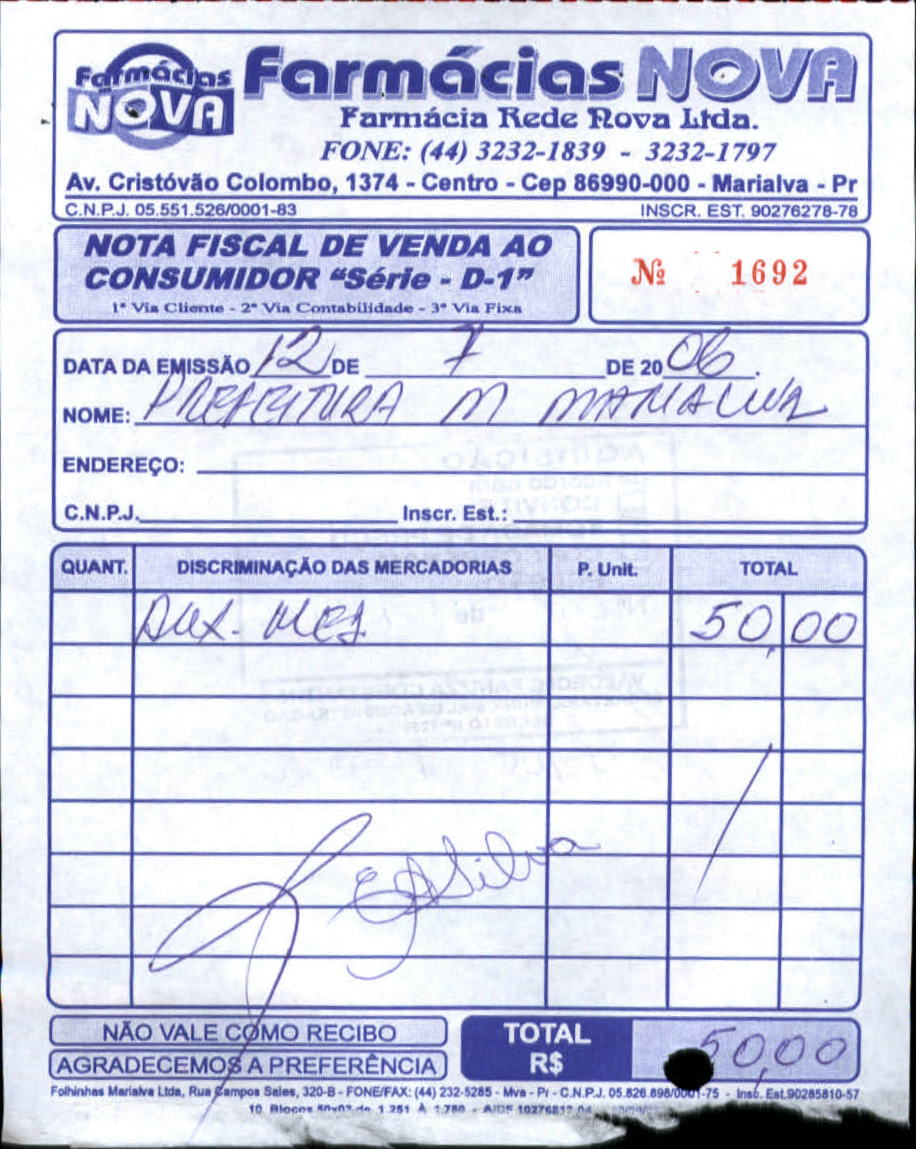 Farmácias NOVA
Farmácias NOVA
Farmácia Rede Nova Ltda.
FONE: (44) 3232-1839 - 3232-1797
Av. Cristóvão Colombo, 1374 - Centro - Cep 86990-000 - Marialva - Pr
C.N.P.J. 05.551.526/0001-83 INSCR. EST. 90276278-78
NOTA FISCAL DE VENDA AO
CONSUMIDOR "Série - D-1"
1ª Via Cliente - 2ª Via Contabilidade - 3ª Via Fixa
Nº 1692
DATA DA EMISSÃO 12 DE 7 DE 2006.
NOME: PREFEITURA M MARIALVA
ENDEREÇO:
C.N.P.J. Inscr. Est.:
QUANT. DISCRIMINAÇÃO DAS MERCADORIAS P. Unit. TOTAL
50,00
EASilva
NÃO VALE COMO RECIBO
AGRADECEMOS A PREFERÊNCIA
TOTAL R$ 50,00
Folhinhas Marialva Ltda, Rua Campos Sales, 320-B - FONE/FAX: (44) 232-5285 - Mva - Pr - C.N.P.J. 05.826.898/0001-75 - Insc. Est.90285810-57
10 Blocos 50x03 de 1.251 À 1.750 - AIDF